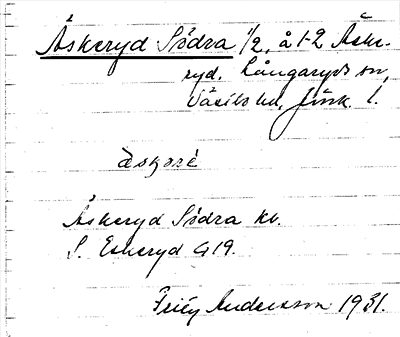 Äskeryd Södra 1/2, å 1-2 Äske-
ryd. Långaryds sn,
Västbo hd, Jönk. l.
Äskeryd Södra kv.
S. Eskeryd G19.
Andersson 1931.